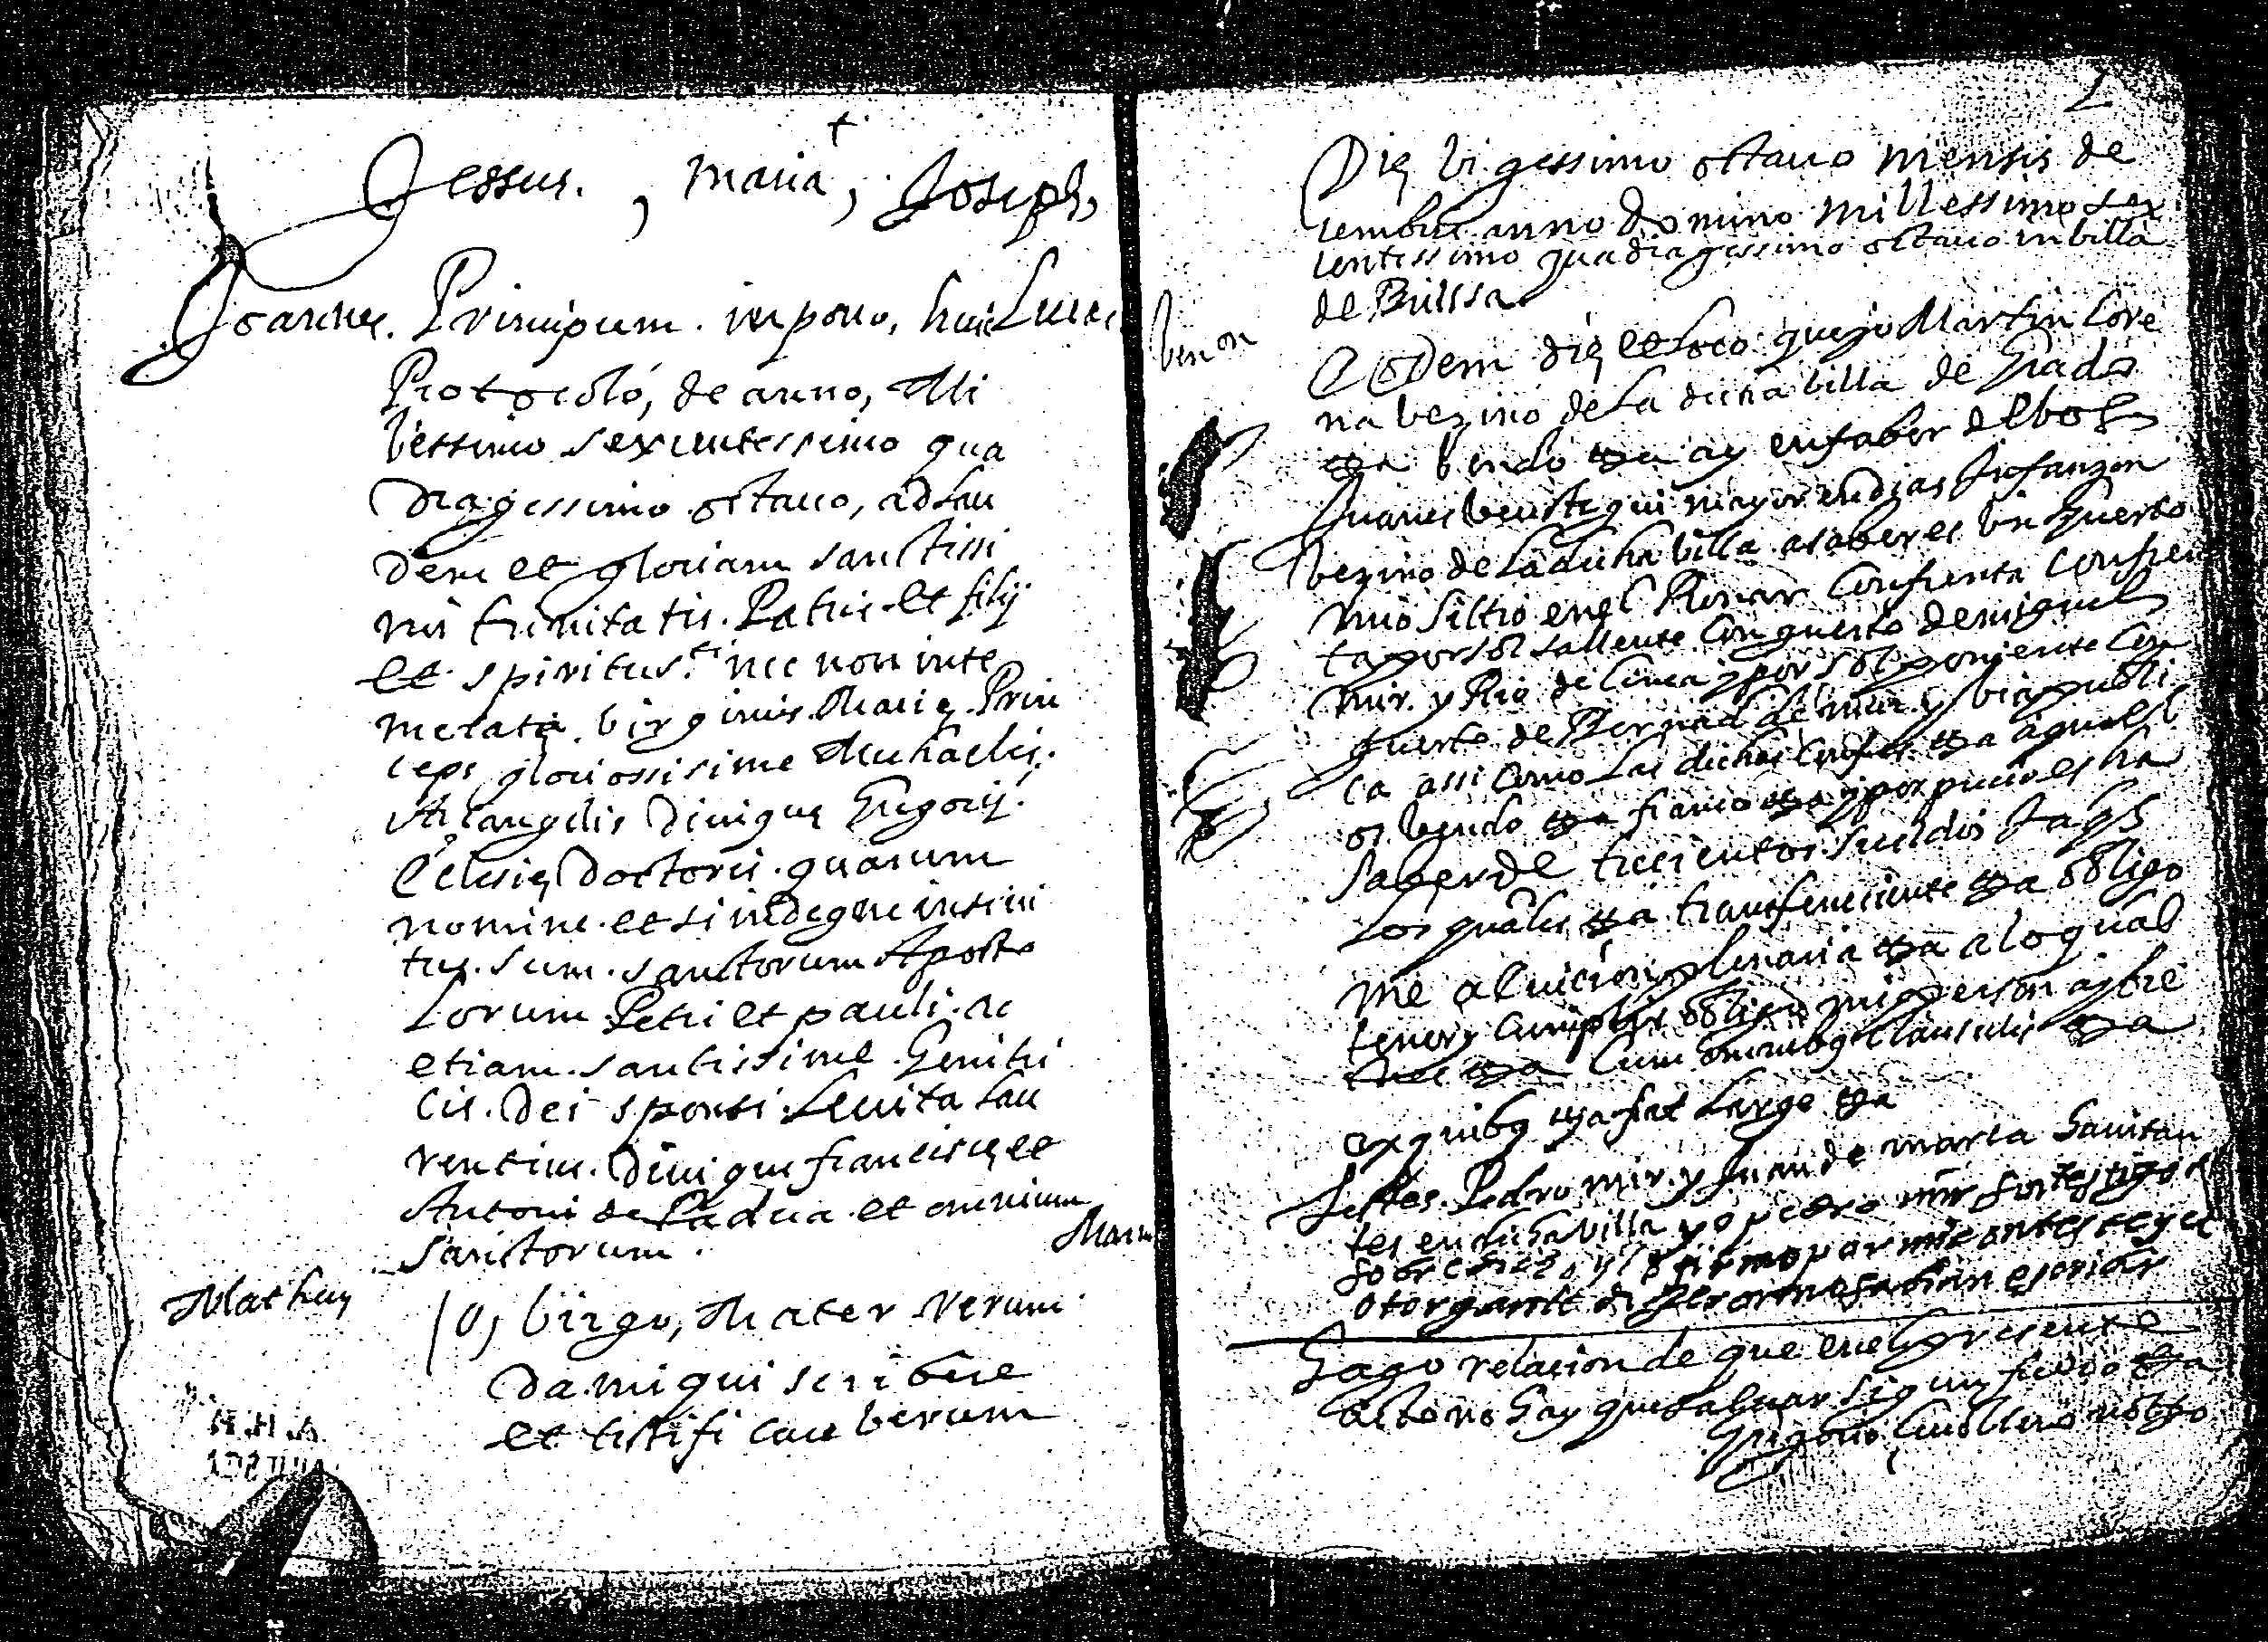 +
Jessus, Maria, Joseph,
Joannes. Principium impono, huic Lucas
Protocolo, de anno, Mi
lessimo sexcentessimo qua
dragessimo octauo, ad lau
dem et gloriam sanctissi
mi trinitatis. Patris et filij
et spiritus sti nec non inte
merata birginis Marie Prin
ceps gloriossisime Michaelis
Arcangelis Diuique Gregorij
Eclesie Doctoris. quarum
nomine et si indegne insini
tus sum. sanctorum Aposto
lorum Petri et pauli. ac
etiam santissime Genitri
cis. Dei sponsi Leuita Lau
rentius. Diuique francisci et
Antoni de Padua et omnium
Sanctorum.
Marcus
Matheus
O, birgo, Mater Verum
Da miqui scribere
et tistificare berum
2
Die bigessimo octauo mensis de
cembris anno Domino millessimo sex
centessimo quadragessimo octauo in billa
de Billssa
ben on
Eodem die et loco que yo Martin Lore
na bezino de la dicha billa de Grado
bendo en fabor de bos
Juanes mayor en dias Infanzon
bezino de la dicha billa a saber es un guerto
mio sittio en el Plenar Confrenta
ta por sol sallente con guerto de miguel
mir. y Rio de Cinca y por sol poniente con
guerto de Bernad de mur y bia publi
ca assi como las dichas
os bendo franco y por precio es ha
saber de trecientos sueldos Jaqs
Los quales transfereciente obligo
me a luicion plenaria a lo qual
tener y cumplir obligo mi persona y bie
nes cum omnibus clausulis
ex quibus fiat large
Testes Pedro mir. y Juan de marca hauitan
tes en dicha villa yo pedro mir soi testigo de
sobredicho y
otorgante escribir
Hago relacion de que en el presente
acto no hay que saluar sigun fuero
Grigorio notrio